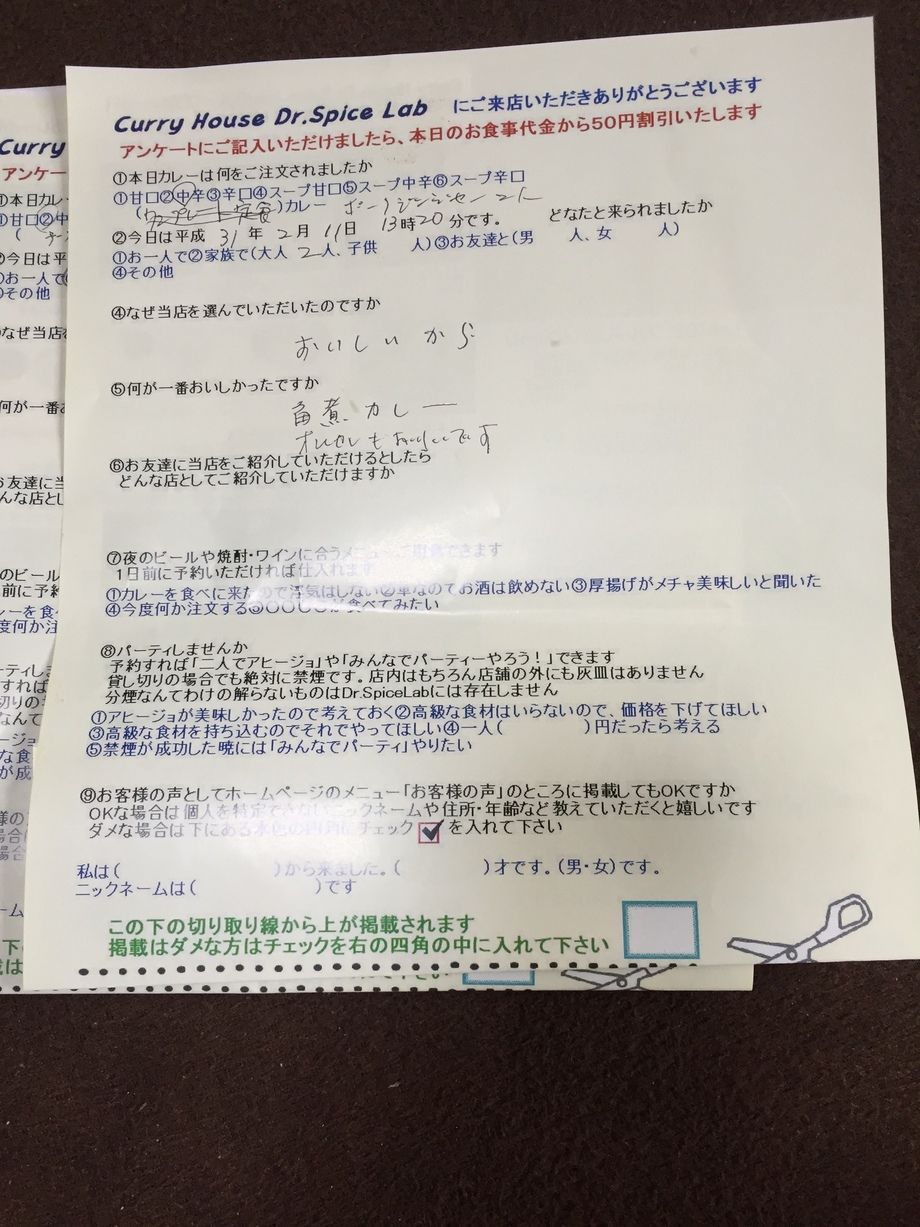 Curry House Dr.Spice Lab にご来店いただきありがとうございます
アンケートにご記入いただけましたら、本日のお食事代金から50円割引いたします
①本日カレーは何をご注文されましたか
①甘口②中辛③辛口④スープ甘口⑤スープ中辛⑥スープ辛口
( )カレー
②今日は平成 31 年 2 月 11 日 13時20分です。 どなたと来られましたか
①お一人で②家族で(大人 2人、子供 人)③お友達と(男 人、女 人)
④その他
④なぜ当店を選んでいただいたのですか
おいしいから
⑤何が一番おいしかったですか
角煮カレー
⑥お友達に当店をご紹介していただけるとしたら
どんな店としてご紹介していただけますか
⑦夜のビールや焼酎・ワインに合うメニューご用意できます
1日前に予約いただければ仕入れます
①カレーを食べに来たので浮気はしない②車なのでお酒は飲めない③厚揚げがメチャ美味しいと聞いた
④今度何か注文する⑤〇〇〇〇が食べてみたい
⑧パーティしませんか
予約すれば「二人でアヒージョ」や「みんなでパーティーやろう!」できます
貸し切りの場合でも絶対に禁煙です。店内はもちろん店舗の外にも灰皿はありません
分煙なんてわけの解らないものはDr.SpiceLabには存在しません
①アヒージョが美味しかったので考えておく②高級な食材はいらないので、価格を下げてほしい
③高級な食材を持ち込むのでそれでやってほしい④一人( )円だったら考える
⑤禁煙が成功した暁には「みんなでパーティ」やりたい
⑨お客様の声としてホームページのメニュー「お客様の声」のところに掲載してもOKですか
OKな場合は個人を特定できないニックネームや住所・年齢など教えていただくと嬉しいです
ダメな場合は下にある水色の四角にチェック を入れて下さい
私は( )から来ました。( )才です。(男・女)です。
ニックネームは( )です
この下の切り取り線から上が掲載されます
掲載はダメな方はチェックを右の四角の中に入れて下さい